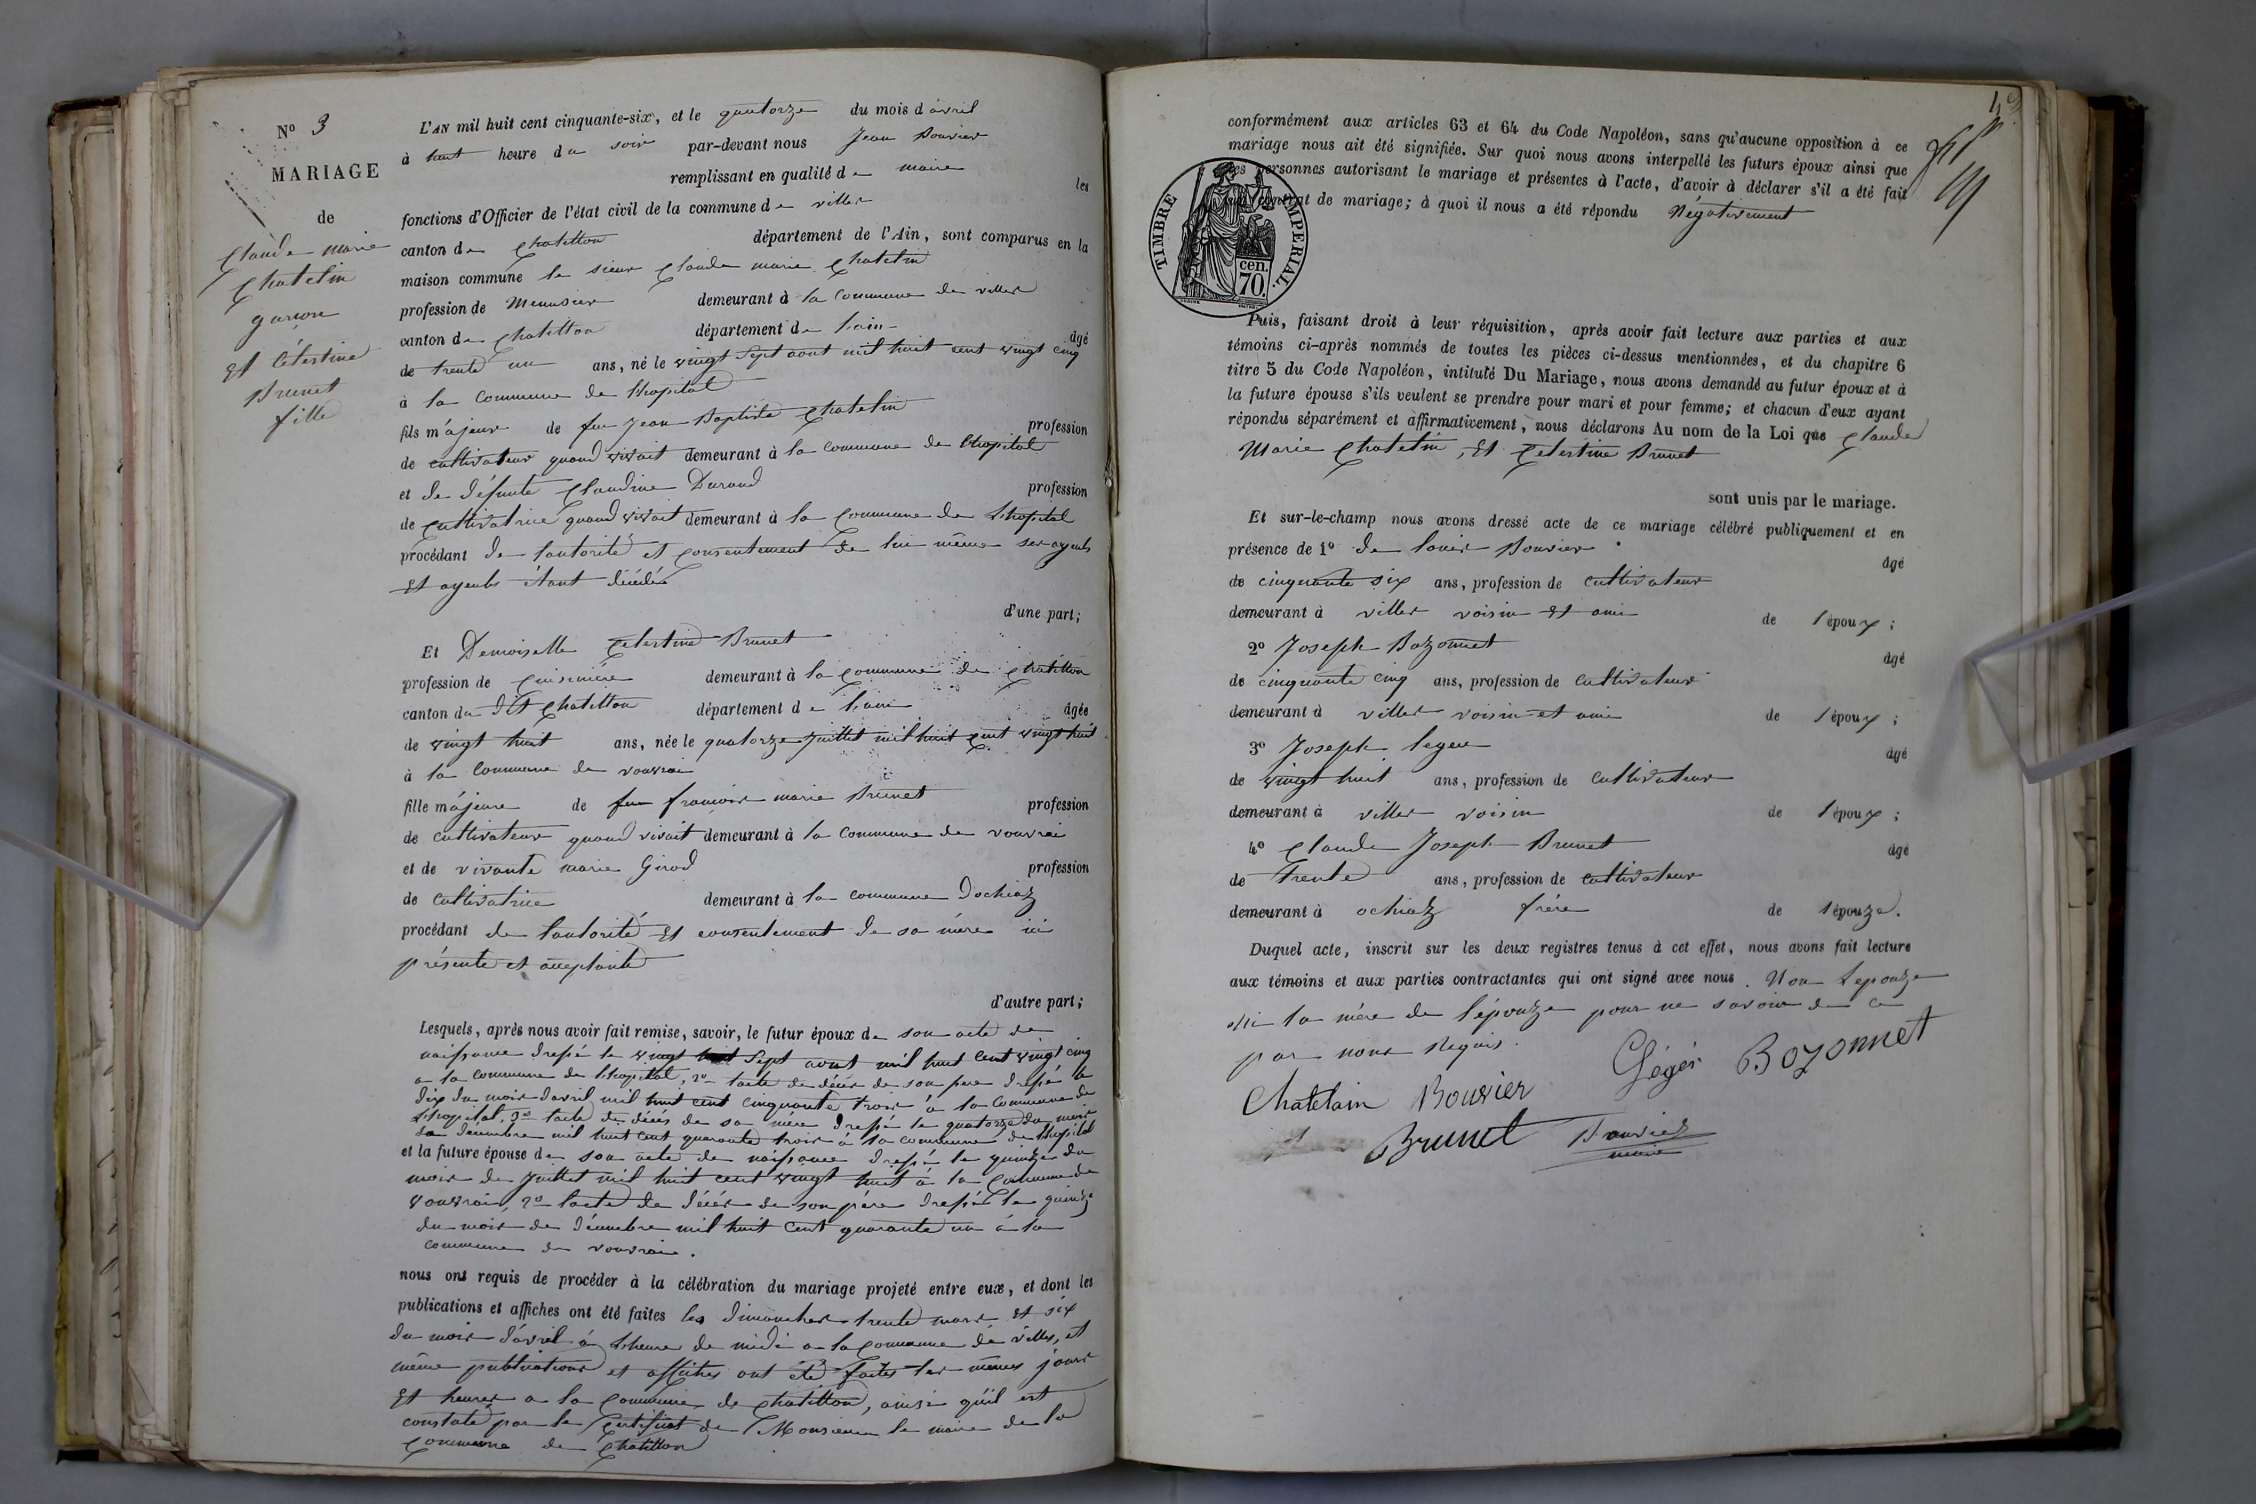 N° 3
MARIAGE
de
Claude marie
Chatelin
garçon
Et Célestine
Brunet
fille
L'AN mil huit cent cinquante-six, et le quatorze du mois d'avril
à huit heure du soir par-devant nous Jean Bouvier
remplissant en qualité de maire les
fonctions d'Officier de l'état civil de la commune de villes
canton de Chatillon département de l'Ain, sont comparus en la
maison commune le sieur Claude marie Chatelin
profession de Menusier demeurant à la commune de villes
canton de Chatillon département de lain âgé
de trente un ans, né le vingt sept aout mil huit cent vingt cinq
à la commune de lhopital
fils májeur de feu Jean Baptiste Chatelin profession
de cultivateur quand vivait demeurant à la commune de lhopital
et de défunte Claudine Durand profession
de cultivatrice quand vivait demeurant à la commune de lhopital
procédant de lautorité et consentement de lui même ses ayeuls
Et ayeuls étant décédés
d'une part;
Et Demoiselle Celestine Brunet
profession de Cuisiniére demeurant à la commune de Chatillon
canton du dit Chatillon département de lain âgée
de vingt huit ans, née le quatorze Juillet mil huit cent vingt huit
à la commune de vouvrai
fille májeure de feu francois marie Brunet profession
de cultivateur quand vivait demeurant à la commune de vouvrai
et de vivante marie Girod profession
de cultivatrice demeurant à la commune Dochiaz
procédant de lautorité Et consentement de sa mére ici
présente et acceptante
d'autre part;
Lesquels, après nous avoir fait remise, savoir, le futur époux de son acte de
naissance dressé le vingt sept aout mil huit cent vingt cinq
a la commune de lhopital, 2° lacte de décés de son pere dressé le
dix du mois davril mil huit cent cinquante trois á la commune de
lhopital, 3° lacte de décés de sa mére dressé le quatorze du mois
de décembre mil huit cent quarante trois á la commune de lhopital
et la future épouse de son acte de naissance dressé le quinze du
mois de Juillet mil huit cent vingt huit á la Commune de
vouvrai, 2° lacte de décés de son pére dressé le quinze
du mois de décembre mil huit cent quarante un á la
commune de vouvrai.
nous ont requis de procéder à la célébration du mariage projeté entre eux, et dont les
publications et affiches ont été faites les dimanches trente mars Et six
du mois d'avril á lheure de midi a la commune de villes, et
même publications et affiches ont été faites les mêmes jours
Et heures a la commune de Chatillon, ainsi quil est
constaté par le Certificat de Monsieur le maire de la
commune de Chatillon
conformément aux articles 63 et 64 du Code Napoléon, sans qu'aucune opposition à ce
mariage nous ait été signifiée. Sur quoi nous avons interpellé les futurs époux ainsi que
les personnes autorisant le mariage et présentes à l'acte, d'avoir à déclarer s'il a été fait
un contrat de mariage; à quoi il nous a été répondu Négativement
TIMBRE IMPERIAL.
70. cen.
Puis, faisant droit à leur réquisition, après avoir fait lecture aux parties et aux
témoins ci-après nommés de toutes les pièces ci-dessus mentionnées, et du chapitre 6
titre 5 du Code Napoléon, intitulé Du Mariage, nous avons demandé au futur époux et à
la future épouse s'ils veulent se prendre pour mari et pour femme; et chacun d'eux ayant
répondu séparément et affirmativement, nous déclarons Au nom de la Loi que Claude
Marie Chatelin, Et Celestine Brunet
sont unis par le mariage.
Et sur-le-champ nous avons dressé acte de ce mariage célébré publiquement et en
présence de 1° de louis Bouvier âgé
de cinquante six ans, profession de cultivateur
demeurant à villes voisin Et ami de l'époux;
2° Joseph Bozonnet âgé
de cinquante cinq ans, profession de cultivateur
demeurant à villes voisin et ami de l'époux;
3° Joseph leger âgé
de vingt huit ans, profession de cultivateur
demeurant à villes voisin de l'époux;
4° Claude Joseph Brunet âgé
de trente ans, profession de cultivateur
demeurant à ochiaz frére de l'épouze.
Duquel acte, inscrit sur les deux registres tenus à cet effet, nous avons fait lecture
aux témoins et aux parties contractantes qui ont signé avec nous. Non Lepouze
ni la mére de l'épouze pour ne savoir de ce
par nous Requis.
Gégér Bozonnet
Chatelain Bouvier
Brunet Bouvier
maire